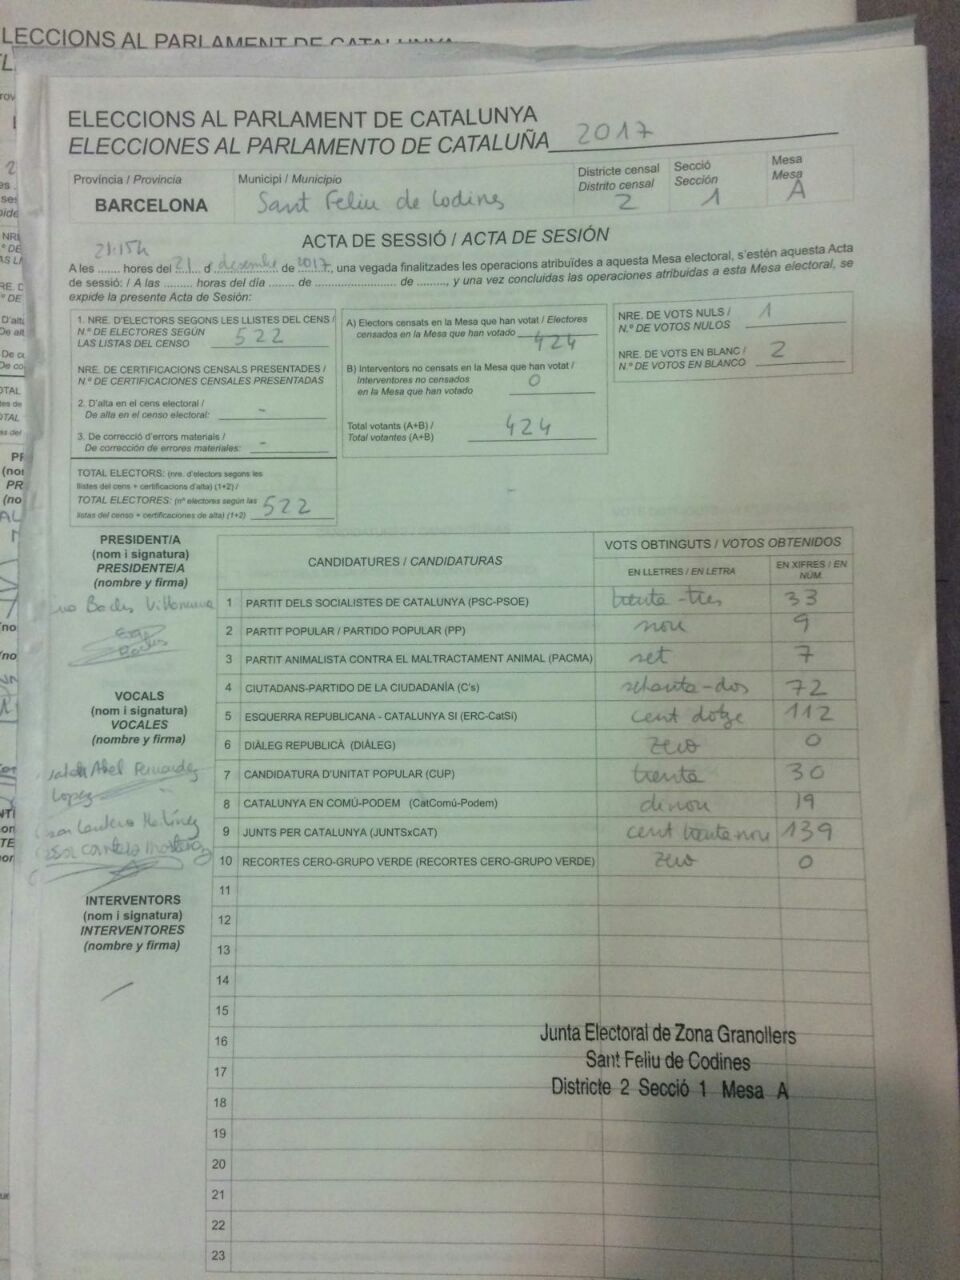 ELECCIONS AL PARLAMENT DE CATALUNYA
ELECCIONS AL PARLAMENT DE CATALUNYA
ELECCIONES AL PARLAMENTO DE CATALUÑA 2017
Província / Provincia
BARCELONA
Municipi / Municipio
Sant Feliu de Codines
Districte censal
Distrito censal
2
Secció
Sección
1
Mesa
Mesa
A
ACTA DE SESSIÓ / ACTA DE SESIÓN
21:15h
A les ...... hores del 21 d desembre de 2017, una vegada finalitzades les operacions atribuïdes a aquesta Mesa electoral, s'estén aquesta Acta
de sessió: / A las ......... horas del día ....... de ........................ de ........., y una vez concluidas las operaciones atribuidas a esta Mesa electoral, se
expide la presente Acta de Sesión:
1. NRE. D'ELECTORS SEGONS LES LLISTES DEL CENS /
N.º DE ELECTORES SEGÚN
LAS LISTAS DEL CENSO 522
NRE. DE CERTIFICACIONS CENSALS PRESENTADES /
N.º DE CERTIFICACIONES CENSALES PRESENTADAS
2. D'alta en el cens electoral /
De alta en el censo electoral: -
3. De correcció d'errors materials /
De corrección de errores materiales: -
TOTAL ELECTORS: (nre. d'electors segons les
llistes del cens + certificacions d'alta) (1+2) /
TOTAL ELECTORES: (nº electores según las
listas del censo + certificaciones de alta) (1+2) 522
A) Electors censats en la Mesa que han votat / Electores
censados en la Mesa que han votado 424
B) Interventors no censats en la Mesa que han votat /
Interventores no censados
en la Mesa que han votado 0
Total votants (A+B) /
Total votantes (A+B) 424
NRE. DE VOTS NULS /
N.º DE VOTOS NULOS 1
NRE. DE VOTS EN BLANC /
N.º DE VOTOS EN BLANCO 2
PRESIDENT/A
(nom i signatura)
PRESIDENTE/A
(nombre y firma)
VOCALS
(nom i signatura)
VOCALES
(nombre y firma)
Abel Fernandez
Lopez
INTERVENTORS
(nom i signatura)
INTERVENTORES
(nombre y firma)
CANDIDATURES / CANDIDATURAS
VOTS OBTINGUTS / VOTOS OBTENIDOS
EN LLETRES / EN LETRA
EN XIFRES / EN NÚM.
1 PARTIT DELS SOCIALISTES DE CATALUNYA (PSC-PSOE) trenta-tres 33
2 PARTIT POPULAR / PARTIDO POPULAR (PP) nou 9
3 PARTIT ANIMALISTA CONTRA EL MALTRACTAMENT ANIMAL (PACMA) set 7
4 CIUTADANS-PARTIDO DE LA CIUDADANÍA (C's) setanta-dos 72
5 ESQUERRA REPUBLICANA - CATALUNYA SI (ERC-CatSí) cent dotze 112
6 DIÀLEG REPUBLICÀ (DIÀLEG) zero 0
7 CANDIDATURA D'UNITAT POPULAR (CUP) trenta 30
8 CATALUNYA EN COMÚ-PODEM (CatComú-Podem) dinou 19
9 JUNTS PER CATALUNYA (JUNTSxCAT) cent trenta nou 139
10 RECORTES CERO-GRUPO VERDE (RECORTES CERO-GRUPO VERDE) zero 0
11
12
13
14
15
16
17
18
19
20
21
22
23
Junta Electoral de Zona Granollers
Sant Feliu de Codines
Districte 2 Secció 1 Mesa A